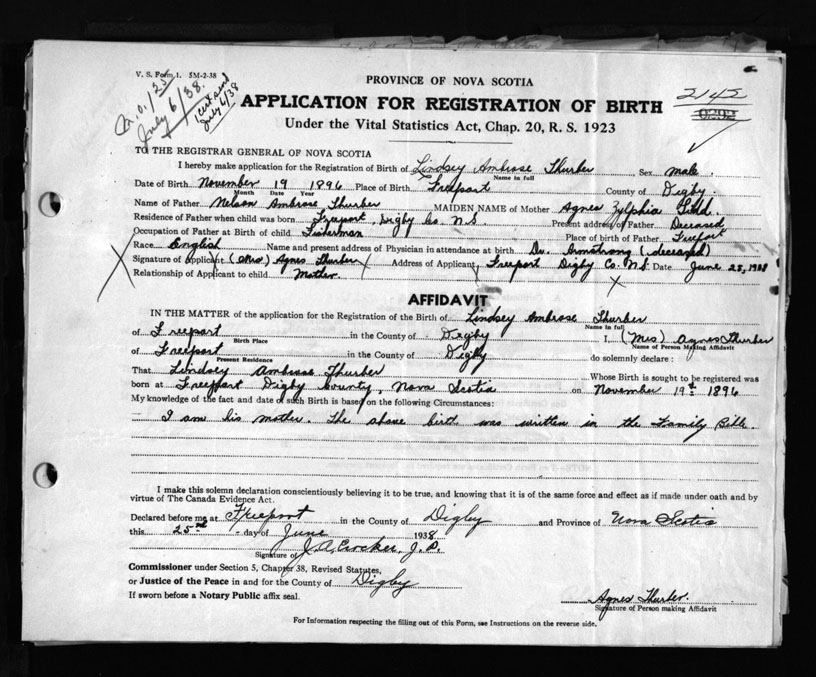 V. S. Form 1. 5M-2-38
July 6/38.
July 6/38
PROVINCE OF NOVA SCOTIA
APPLICATION FOR REGISTRATION OF BIRTH
2142
Under the Vital Statistics Act, Chap. 20, R. S. 1923
TO THE REGISTRAR GENERAL OF NOVA SCOTIA
I hereby make application for the Registration of Birth of Lindsey Ambrose Thurber Sex male.
Name in full
Date of Birth November 19 1896 Place of Birth Freeport County of Digby.
Month Date Year
Name of Father Nelson Ambrose Thurber MAIDEN NAME of Mother Agnes Zylphia
Residence of Father when child was born Freeport, Digby Co. N.S. Present address of Father Deceased
Occupation of Father at Birth of child Fisherman Place of birth of Father Freeport
Race English Name and present address of Physician in attendance at birth Dr. Armstrong (deceased)
Signature of Applicant (Mrs) Agnes Thurber Address of Applicant Freeport Digby Co. N.S. Date June 25, 1938
Relationship of Applicant to child Mother.
AFFIDAVIT
IN THE MATTER of the application for the Registration of the Birth of Lindsey Ambrose Thurber
Name in full
of Freeport in the County of Digby I, (Mrs) Agnes Thurber
Birth Place Name of Person Making Affidavit
of Freeport in the County of Digby do solemnly declare:
Present Residence
That Lindsey Ambrose Thurber Whose Birth is sought to be registered was
born at Freeport Digby County, Nova Scotia on November 19th 1896
My knowledge of the fact and date of such Birth is based on the following Circumstances:
I am his mother. The above birth was written in the Family Bible.
I make this solemn declaration conscientiously believing it to be true, and knowing that it is of the same force and effect as if made under oath and by
virtue of The Canada Evidence Act.
Declared before me at Freeport in the County of Digby and Province of Nova Scotia
this 25th day of June 1938
Signature of J. A. J. P.
Commissioner under Section 5, Chapter 38, Revised Statutes,
or Justice of the Peace in and for the County of Digby
If sworn before a Notary Public affix seal.
Agnes Thurber.
Signature of Person making Affidavit
For Information respecting the filling out of this Form, see Instructions on the reverse side.